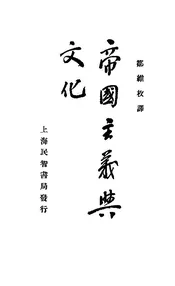 鄒維枚譯
帝國主義與
文化
上海民智書局發行